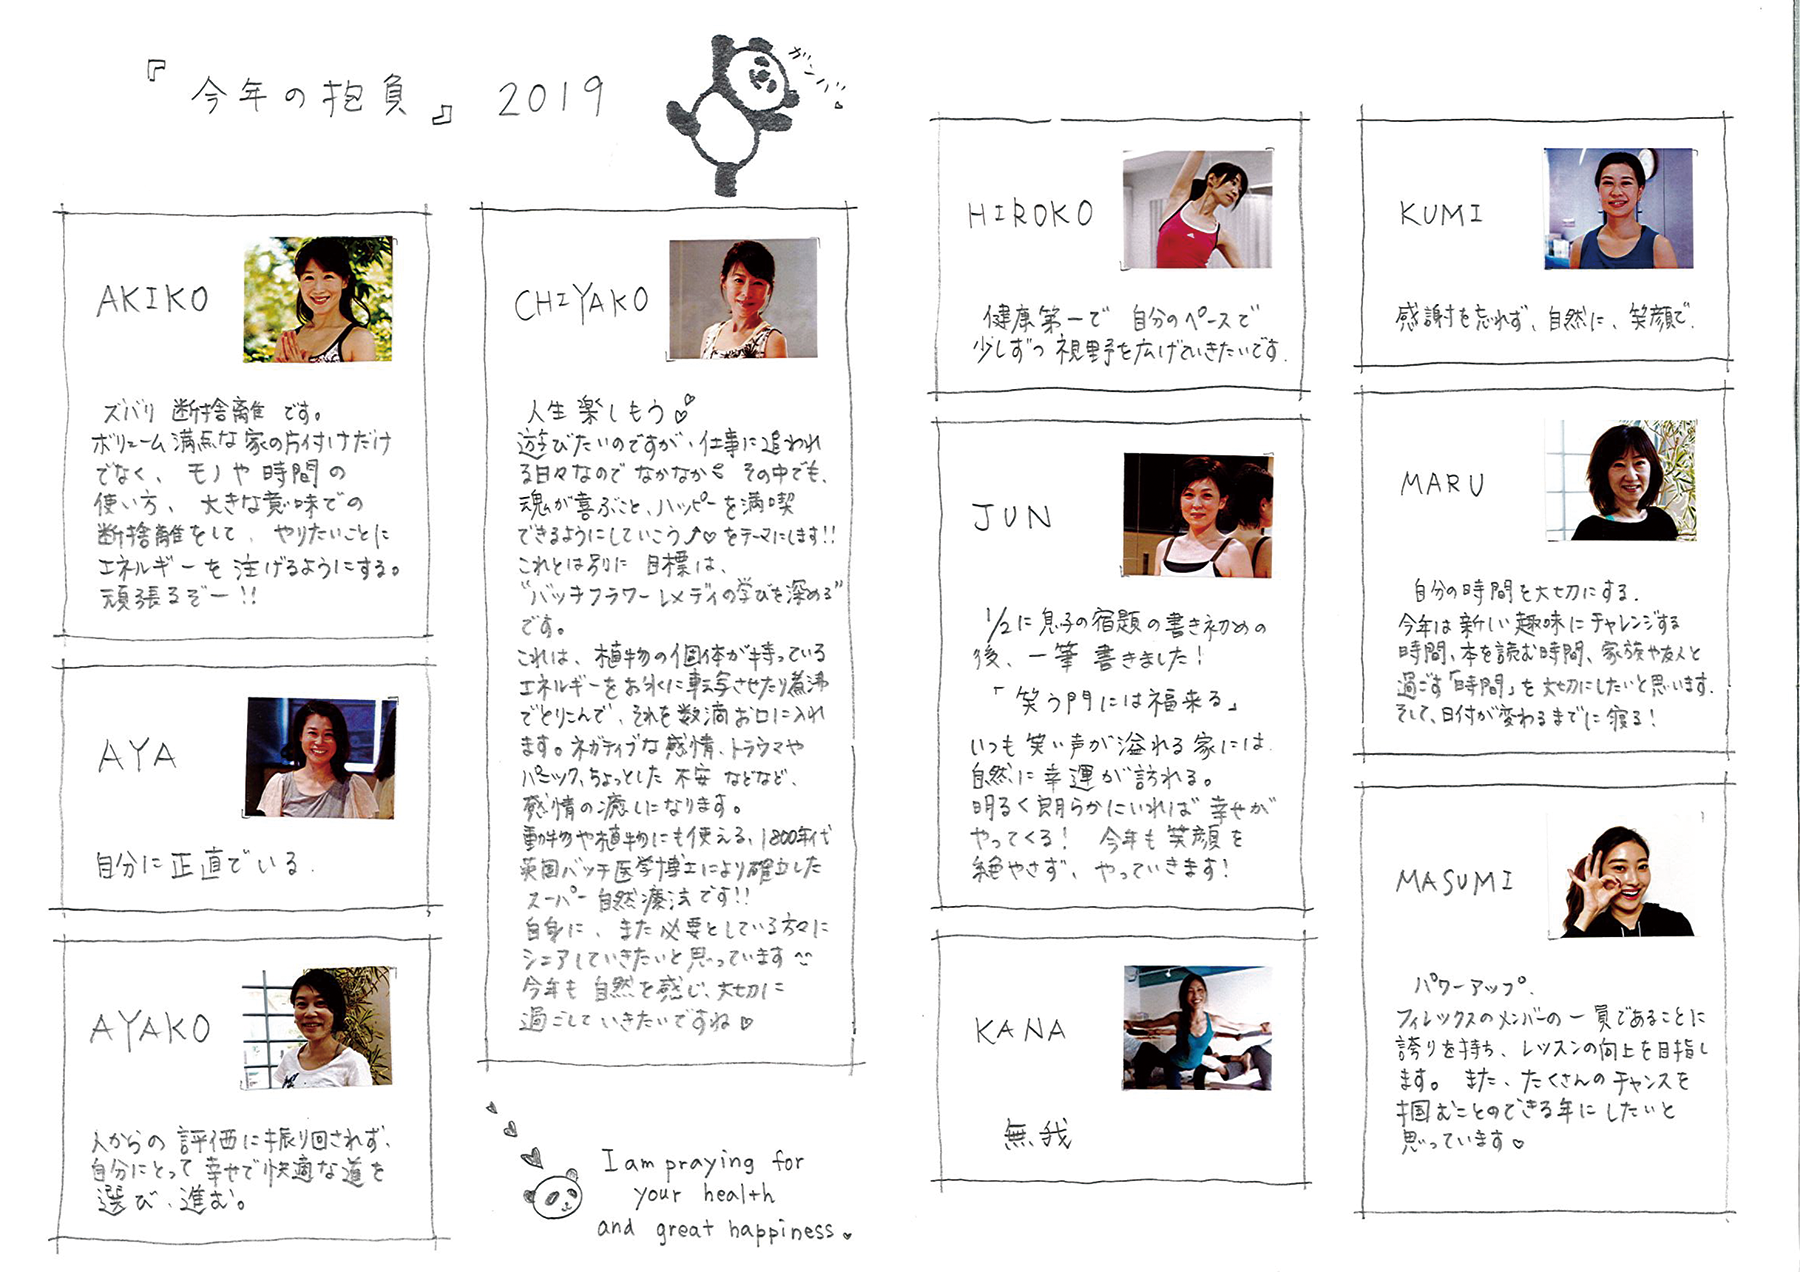 『今年の抱負』 2019
ガンバ
AKIKO
ズバリ 断捨離 です。
ボリューム満点な家の片付けだけ
でなく、モノや時間の
使い方、大きな意味での
断捨離をして、やりたいことに
エネルギーを注げるようにする。
頑張るぞー!!
AYA
自分に正直でいる.
AYAKO
人からの評価に振り回されず、
自分にとって幸せで快適な道を
選び、進む。
CHIYAKO
人生楽しもう
遊びたいのですが、仕事に追われ
る日々なのでなかなか その中でも、
魂が喜ぶこと、ハッピーを満喫
できるようにしていこう♪♡をテーマにします!!
これとは別に目標は、
"バッチフラワーレメディの学びを深める"
です。
これは、植物の個体が持っている
エネルギーをお水に転写させたり煮沸
でとりこんで、それを数滴お口に入れ
ます。ネガティブな感情、トラウマや
パニック、ちょっとした不安などなど、
感情の癒しになります。
動物や植物にも使える、1800年代
英国バッチ医学博士により確立した
スーパー自然療法です!!
自身に、また必要としている方々に
シェアしていきたいと思っています
今年も自然を感じ、大切に
過ごしていきたいですね♡
I am praying for
your health
and great happiness.
HIROKO
健康第一で 自分のペースで
少しずつ視野を広げていきたいです.
JUN
1/2に息子の宿題の書き初めの
後、一筆書きました!
「笑う門には福来る」
いつも笑い声が溢れる家には、
自然に幸運が訪れる。
明るく朗らかにいれば幸せが
やってくる! 今年も笑顔を
絶やさず、やっていきます!
KANA
無我
KUMI
感謝を忘れず、自然に、笑顔で.
MARU
自分の時間を大切にする.
今年は新しい趣味にチャレンジする
時間、本を読む時間、家族や友人と
過ごす「時間」を大切にしたいと思います.
そして、日付が変わるまでに寝る!
MASUMI
パワーアップ.
フィレックスのメンバーの一員であることに
誇りを持ち、レッスンの向上を目指し
ます。また、たくさんのチャンスを
掴むことのできる年にしたいと
思っています♡